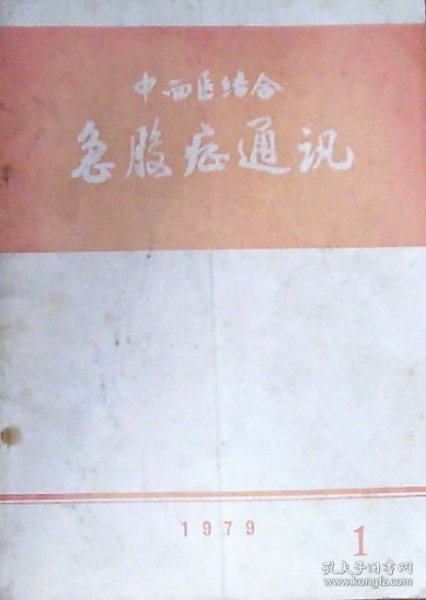 中西医结合
急腹症通讯
1979
1
孔夫子旧书网
www.kongfz.com